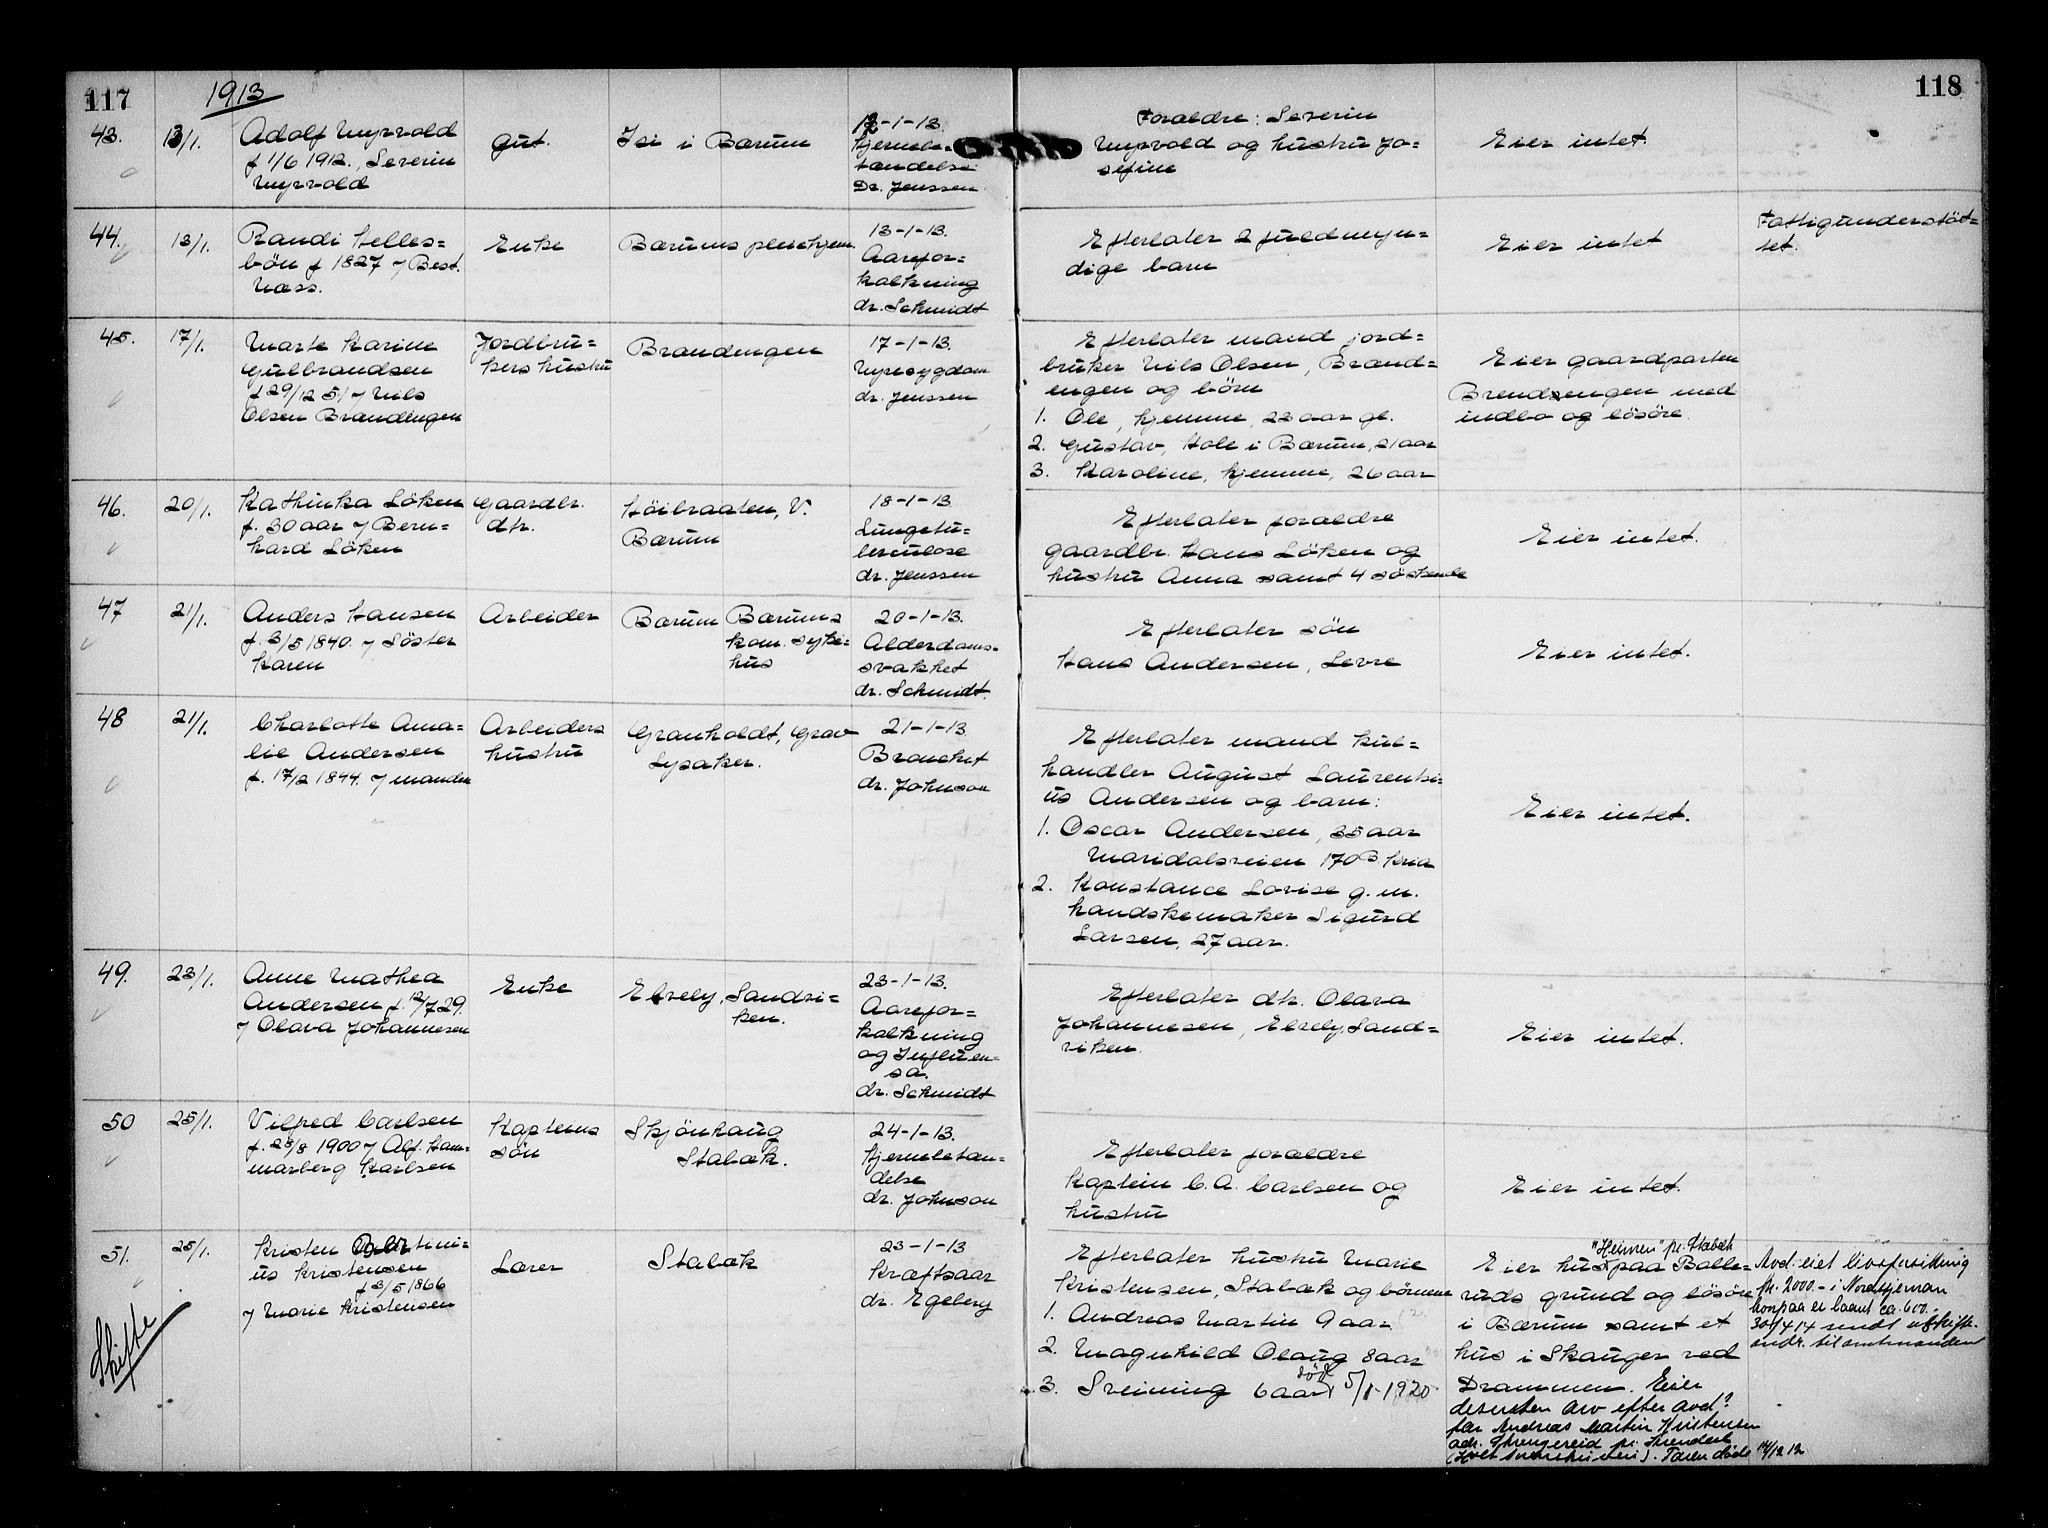 117
1913
118
43.
13/1.
Adolf Myrvold
f 1/6 1912, Severin
Myrvold
Gut.
Isi i Bærum
12-1-13.
Hjernebe-
tændelse
Dr. Jenssen
Forældre: Severin
Myrvold og hustru Jo-
sefine
Eier intet.
44.
13/1.
Randi Helles-
bön f 1827 / Best.
Næss.
Enke
Bærums pleiehjem
13-1-13.
Aarefor-
kalkning
dr. Schmidt
Efterlater 2 fuldmyn-
dige barn
Eier intet
Fattigunderstöt-
tet.
45.
17/1.
Marte Karine
Gulbrandsen
f 29/12 51 / Nils
Olsen Brændingen
Jordbru-
kers hustru
Brændingen
17-1-13.
Nyresygdom
dr. Jenssen
Efterlater mand jord-
bruker Nils Olsen, Brænd-
engen og börn
1. Ole, hjemme, 23 aar gl.
2. Gustav, Hole i Bærum, 21 aar
3. Karoline, hjemme, 26 aar
Eier gaardparten
Brændengen med
indbo og lösöre.
46.
20/1.
Kathinka Löken
f. 30 aar / Bern-
hard Löken
Gaardbr.
dtr.
Höibraaten, V.
Bærum
18-1-13.
Lungetu-
berculose
dr. Jenssen
Efterlater forældre
gaardbr. Hans Löken og
hustru Anna samt 4 söskende
Eier intet.
47
21/1.
Anders Hansen
f. 3/5 1840. / Söster
Karen
Arbeider
Bærum
Bærums
kom. syke-
hus
20-1-13.
Alderdoms-
svakhet
dr. Schmidt.
Efterlater sön
Hans Andersen, Levre
Eier intet.
48
21/1.
Charlotte Ama-
lie Andersen
f. 17/2 1844. / manden
Arbeiders
hustru
Granholdt, Grav
Lysaker.
21-1-13
Bronchit
dr. Johnson
Efterlater mand kul-
handler August Laurenti-
us Andersen og barn:
1. Oscar Andersen, 35 aar
Maridalsveien 170 B. Kria
2. Konstance Lovise g. m.
handskemaker Sigurd
Larsen, 27 aar.
Eier intet.
49.
23/1.
Anne Mathea
Andersen f. 12/7 29.
/ Olava Johannesen
Enke
Elvely, Sandvi-
ken.
23-1-13.
Aarefor-
kalkning
og Influen-
sa.
dr. Schmidt
Efterlater dtr. Olava
Johannesen, Elvely, Sand-
viken.
Eier intet.
50
25/1.
Vilfred Carlsen
f. 23/8 1900 / Alf. Ham-
marberg Karlsen
Kapteins
sön
Skjönhaug
Stabæk.
24-1-13.
Hjernebetæn-
delse
dr. Johnson
Efterlater forældre
Kaptein C. A. Carlsen og
hustru
Eier intet.
51.
25/1.
Kristen
us Kristensen
f 3/5 1866
/ Marie Kristensen
Skifte
Lærer
Stabæk
23-1-13
Kræftsaar
dr. Egeberg
Efterlater hustru Marie
Kristensen, Stabæk og börnene
1. Andreas Martin 9 aar
2. Magnhild Olaug 8 aar
3. Sveining 6 aar död 5/1-1920
"Heimen" pr. Stabæk
Eier hus paa Balle-
ruds grund og lösöre
i Bærum samt et
hus i Skauger ved
Drammen. Eier
desuten arv efter avd?
far Andreas Martin Kristensen
adr. pr.
Faren döde 14/12 12
Avd. eiet livsforsikring
kr. 2000.- i Nordstjernen
hvorpaa er laant ca. 600.-
30/4 14 sendt utskifte-
andr. til amtmanden